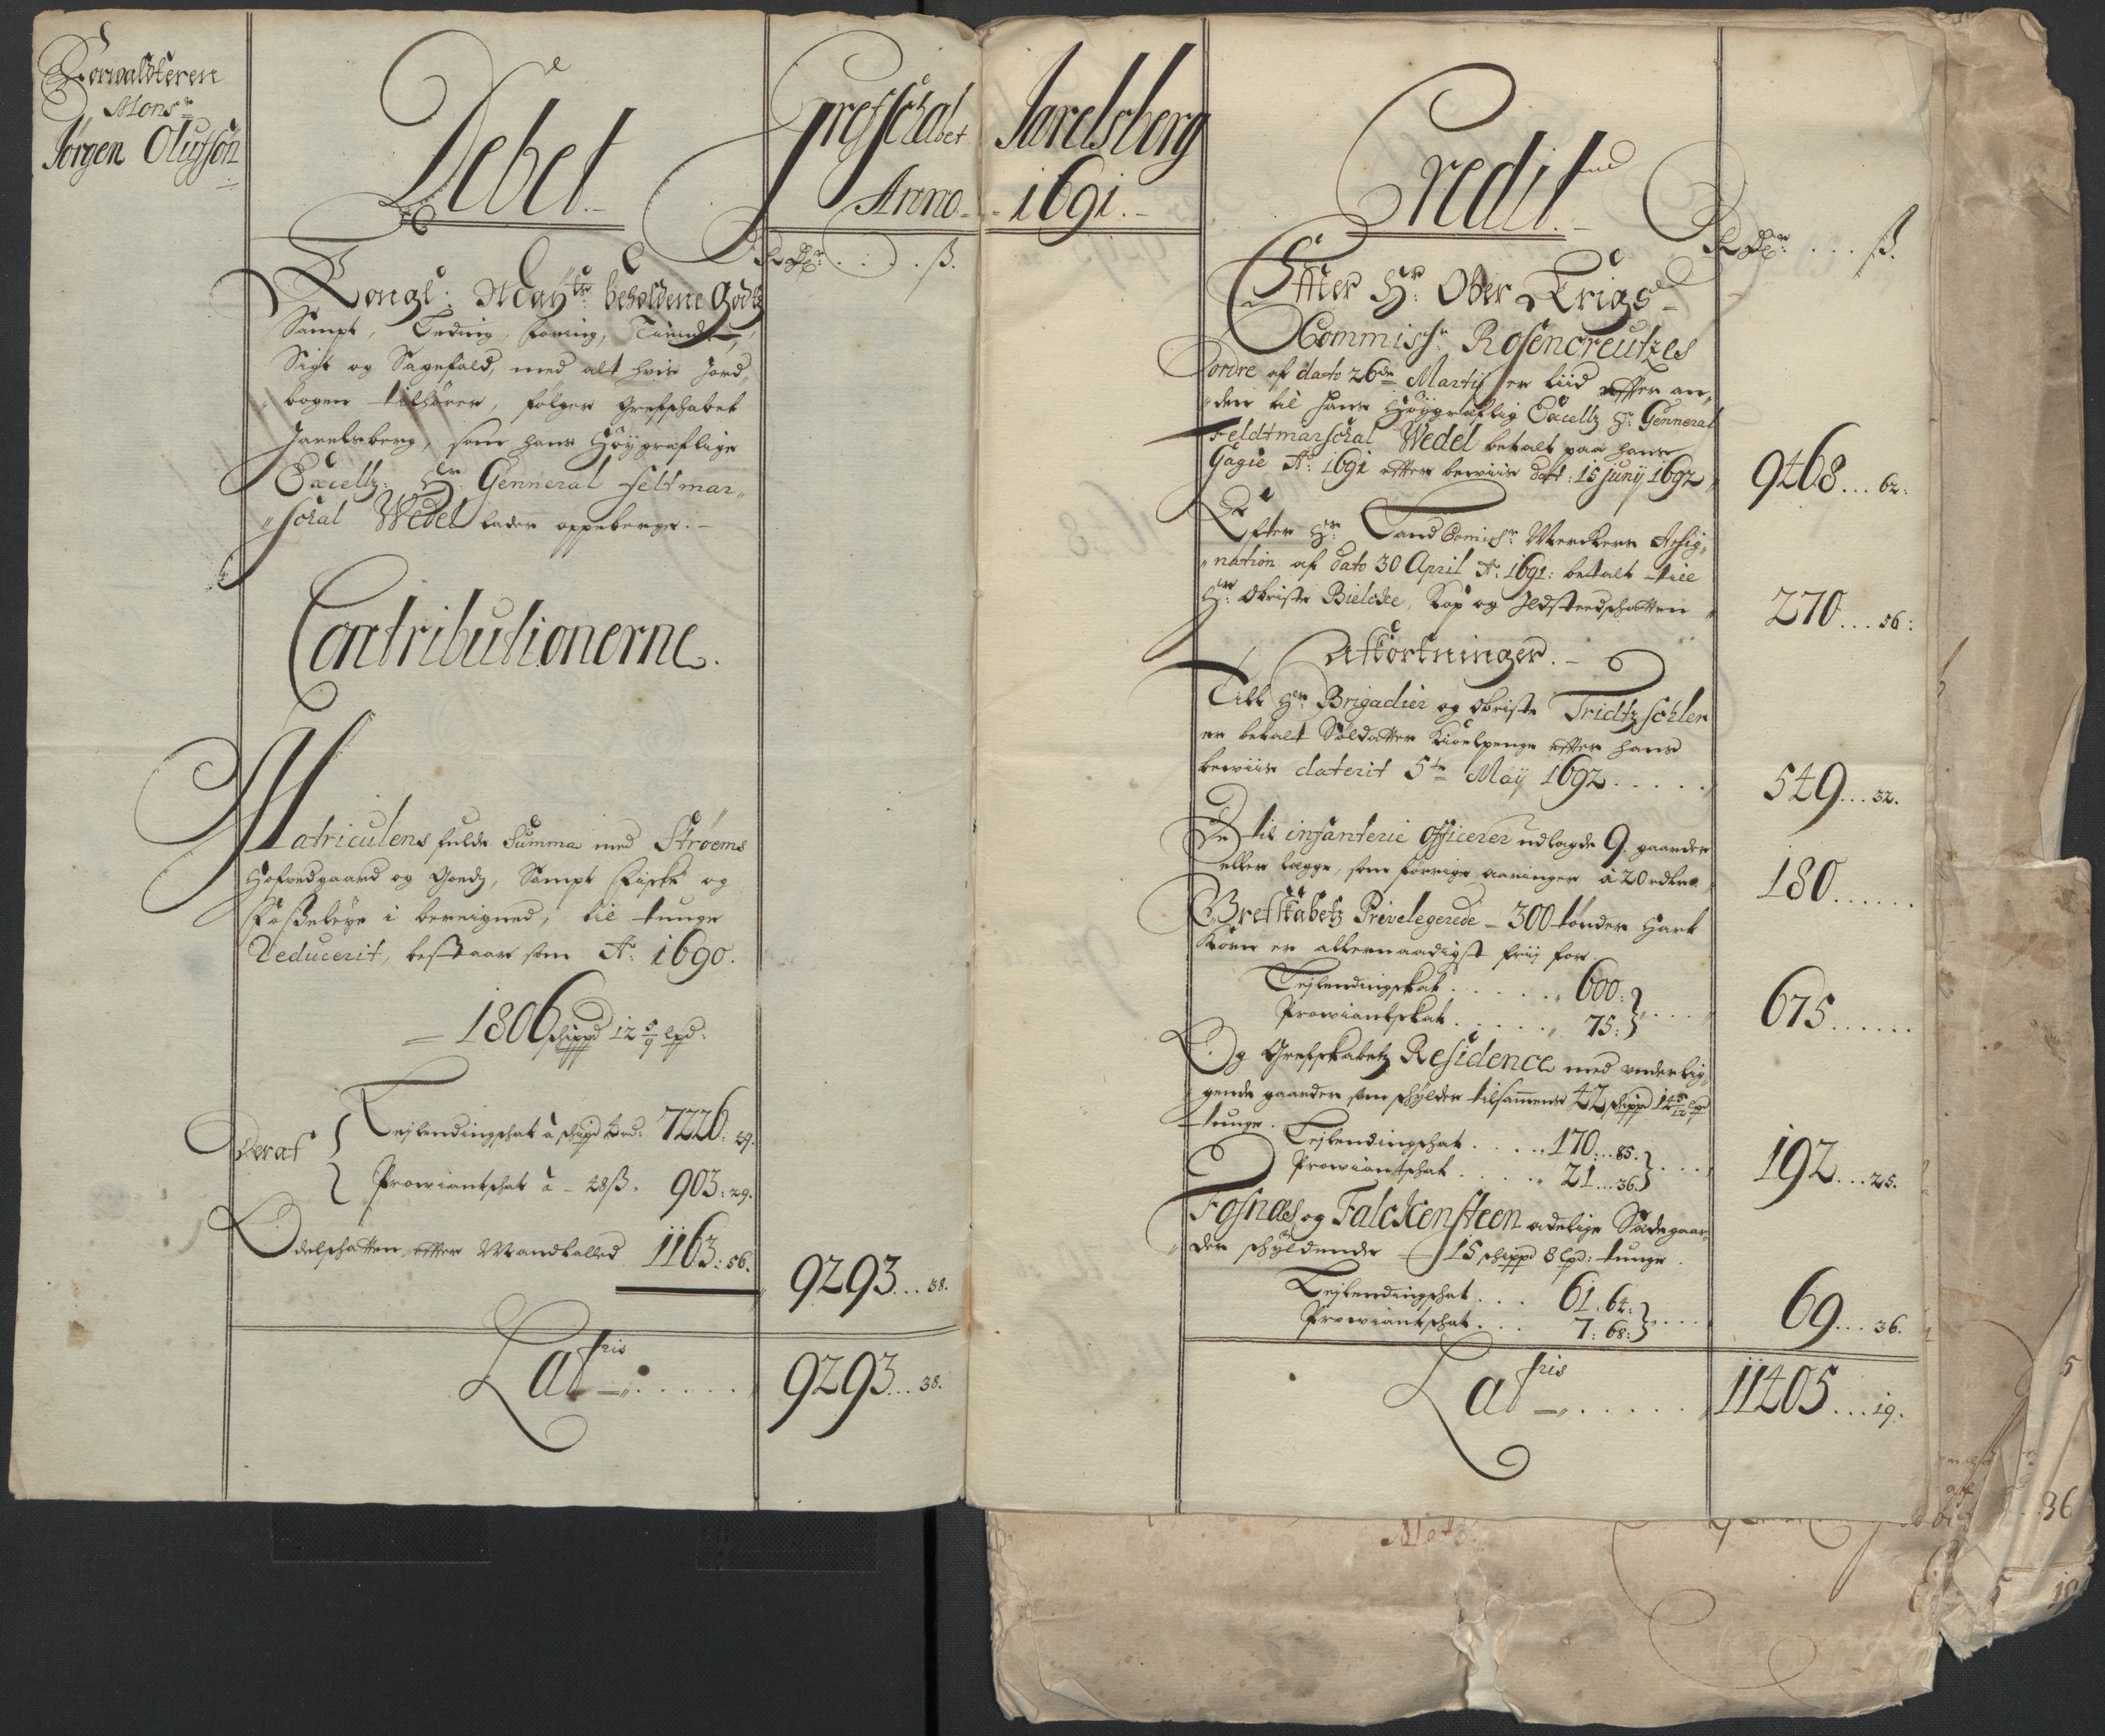 Forwaldteren
Monsr
Jørgen Olufsøn
Debet
Grefschabet Jarelsberg
Anno 1691.
Rdr: . . . ß.
Kongl: Maÿtz beholdene godtz
Sampt, Leding, foring, Tiende,
Sigt og Sagefald, med alt hvis Jord„
bogen tilhører, følger Grefschabet
Jarelsberg, som hans Høÿgraflige
Excelltz: Hr Genneral feltmar„
„schal Wedel lader oppeberge.
Contributionerne.
Matriculens fulde Summa med Strøems
Hofvedgaard og Goedtz, Sampt Fiske og
Foßeleÿe i bereigned, til tunge
Reducerit, bestaar som Ao: 1690.
1806 schippd 12 5/9 lpd:
Deraf
Lejlendingschat à schipd 4 rd: 7226: 49.
Prowiantschat à 48ß. 903: 29.
Odelschatten, effter Mandtalled 1163: 56.
9293... 38.
Latris . . . . . 9293... 38.
Credit
Rdr: . . . ß.
Effter Hr: Ober Krigs
Commissr: Rosencreutzes
ordre af dato 26de Martÿ er tiid effter an„
„den til hans Høÿgraflig Excelltz Hr: Genneral
Feldtmarschal Wedel betalt paa hans
Gagie Ao: 1691 effter beviis dat: 15 Junÿ 1692 9468... 62:
Effter Hr: Land Comissr Merckers Assig„
„nation af dato 30 April Ao: 1691: betalt till
Hr: Obriste Bielcke, Kop og Ildstedschatten 270... 56:
Afkortninger.
Till Hr: Brigadier og Obriste Tridtzschler
er betalt Soldatter Kioelpenge effter hans
beviis daterit 5te Maÿ 1692 . . . . . 549... 32.
De til infanterie Officerer udlagde 9. gaarder
eller lægge, som forrige aaringer à 20 rdler 180......
Grefskabetz Privelegerede 300 tønder Hart
Korn er allernaadigst friÿ for
Lejlendingskat . . . . . 600:
Prowiantskat . . . . . 75: 675......
Og Grefskabetz Residence med underlig„
gende gaarder som schÿlder tilsammens 42 schippd 14 5/12 lpd
tunge. Lejlendingschat . . . . 170:..85.
Prowiantschat . . . . 21...36. 192...25.
Fosnæs og Falckensteen adelige Sædegaar„
„der schÿldende 15 schippd 8 lpd: tunge.
Lejlendingschat . . . 61. 64:
Prowiantschat . . . 7: 68: 69...36.
Latris . . . . . 11405...19.